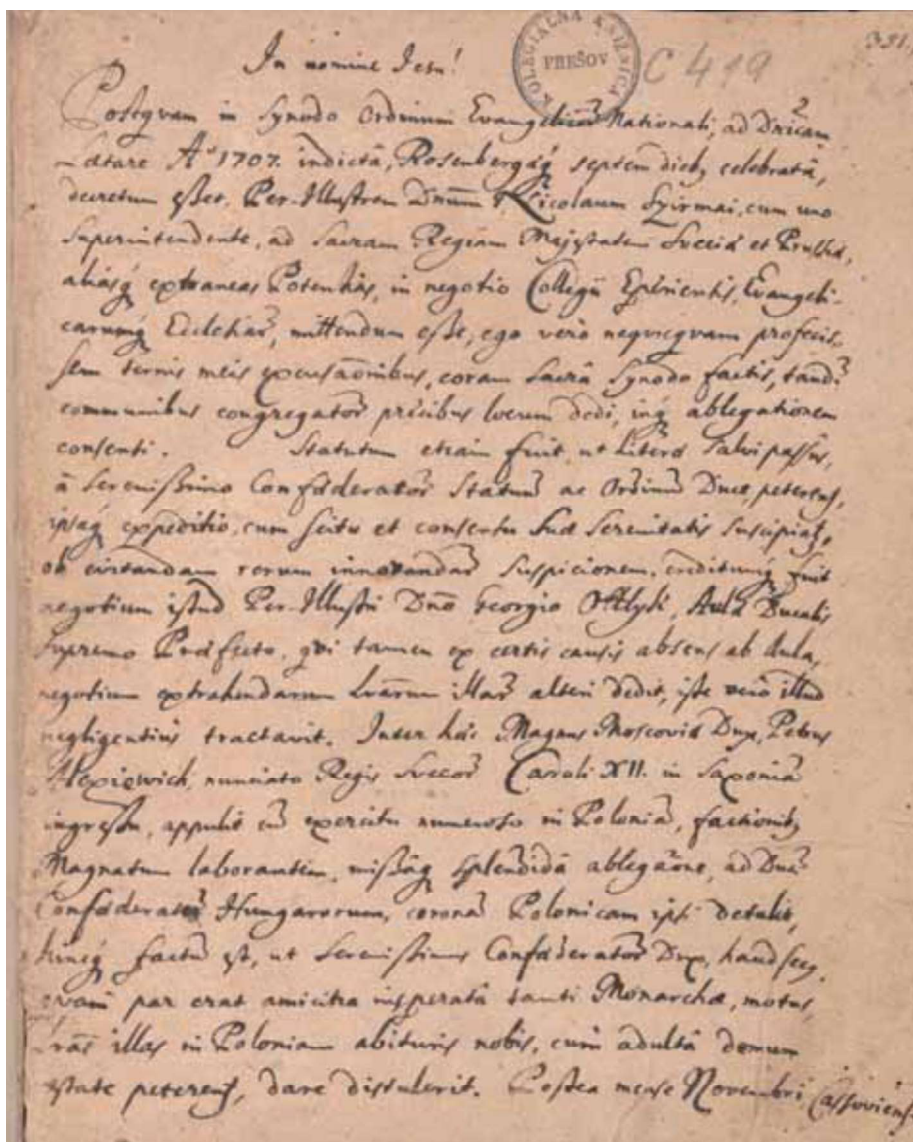 331.
KOLEGIALNA KNIŽNICA
PREŠOV
C 419
In nomine Jesu!
Postqvam in Synodo Ordinum Evangelicor̃ Nationali, ad Dnĩcam
Lætare Aº 1707. indictâ, Rosenbergæq́ septem dieb9 celebratâ,
decretum esset, Per-Illustrem Dnũm Nicolaum Szirmai, cum uno
Superintendente, ad Sacram Regiam Majestatem Sveciæ et Prussiæ,
aliasq́ extraneas Potentias, in negotio Collegii Eperiensis, Evangeli-
carumq́ Ecclesiar̃, mittendum esse, ego verò neqvicqvam profecis-
sem ternis meis excusaõnibus, coram Sacrâ Synodo factis, tandẽ
communibus congregator̃ precibus locum dedi, inq́ ablegationem
consensi. Statutum etiam fuit, ut literæ salvi passus,
â Serenissimo Confœderator̃ Statuũ ac Ordinũ Duce peterent,
ipsaq́ expeditio, cum scitu et consensu Suæ Serenitatis suscipiat,
ob evitandam rerum innovandar̃ suspicionem, creditumq́ fuit
negotium istud Per-Illustri Dnõ Georgio Ottlyk, Aulæ Ducalis
Supremo Præfecto, qvi tamen ex certis causis absens ab Aula,
negotium extrahendarum Lrãrum illar̃ alteri dedit, iste verò illud
negligentius tractavit. Inter hæc Magnus Moscoviæ Dux, Petrus
Alexiewich, nunciato Regis Svecor̃ Caroli XII. in Saxoniã
ingressu, appulit cũ exercitu numeroso in Poloniã, factionib9
Magnatum laborantem, missâq́ splendidâ ablegãõne, ad Ducẽ
Confœderator̃ Hungarorum, coronã Polonicam ipsi detulit,
hincq́ factũ est, ut Serenissimus Confœderator̃ Dux, haud secq,
qvam par erat amicitia insperatâ tanti Monarchæ, motus,
Lrãs illas in Poloniam abituris nobis, cum adultâ demum
æstate peterent, dare distulerit. Postea mense Novembri, Cassoviens